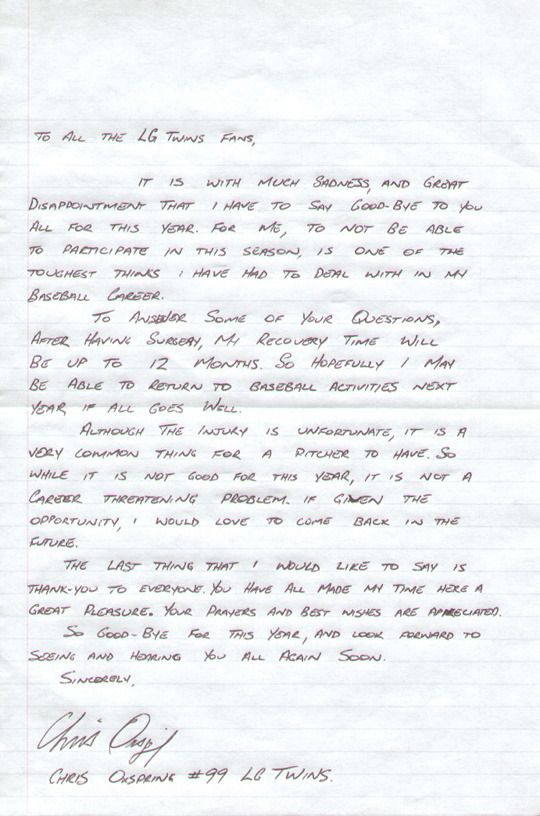 TO ALL THE LG TWINS FANS,
IT IS WITH MUCH SADNESS, AND GREAT
DISAPPOINTMENT THAT I HAVE TO SAY GOOD-BYE TO YOU
ALL FOR THIS YEAR. FOR ME, TO NOT BE ABLE
TO PARTICIPATE IN THIS SEASON, IS ONE OF THE
TOUGHEST THINGS I HAVE HAD TO DEAL WITH IN MY
BASEBALL CAREER.
TO ANSWER SOME OF YOUR QUESTIONS,
AFTER HAVING SURGERY, MY RECOVERY TIME WILL
BE UP TO 12 MONTHS. SO HOPEFULLY I MAY
BE ABLE TO RETURN TO BASEBALL ACTIVITIES NEXT
YEAR, IF ALL GOES WELL.
ALTHOUGH THE INJURY IS UNFORTUNATE, IT IS A
VERY COMMON THING FOR A PITCHER TO HAVE. SO
WHILE IT IS NOT GOOD FOR THIS YEAR, IT IS NOT A
CAREER THREATENING PROBLEM. IF GIVEN THE
OPPORTUNITY, I WOULD LOVE TO COME BACK IN THE
FUTURE.
THE LAST THING THAT I WOULD LIKE TO SAY IS
THANK-YOU TO EVERYONE. YOU HAVE ALL MADE MY TIME HERE A
GREAT PLEASURE. YOUR PRAYERS AND BEST WISHES ARE APPRECIATED.
SO GOOD-BYE FOR THIS YEAR, AND LOOK FORWARD TO
SEEING AND HEARING YOU ALL AGAIN SOON.
SINCERELY,
Chris Oxspring
CHRIS OXSPRING #99 LG TWINS.